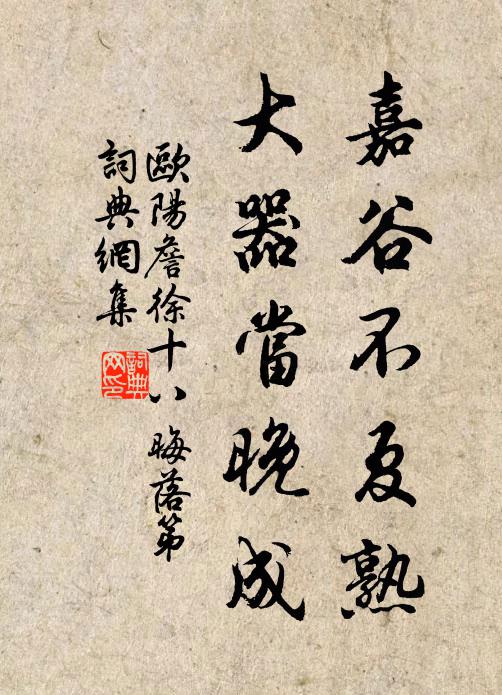 嘉谷不夏熟
大器當晚成
歐陽詹徐十八 晦落第
詞典網集
詞典網印